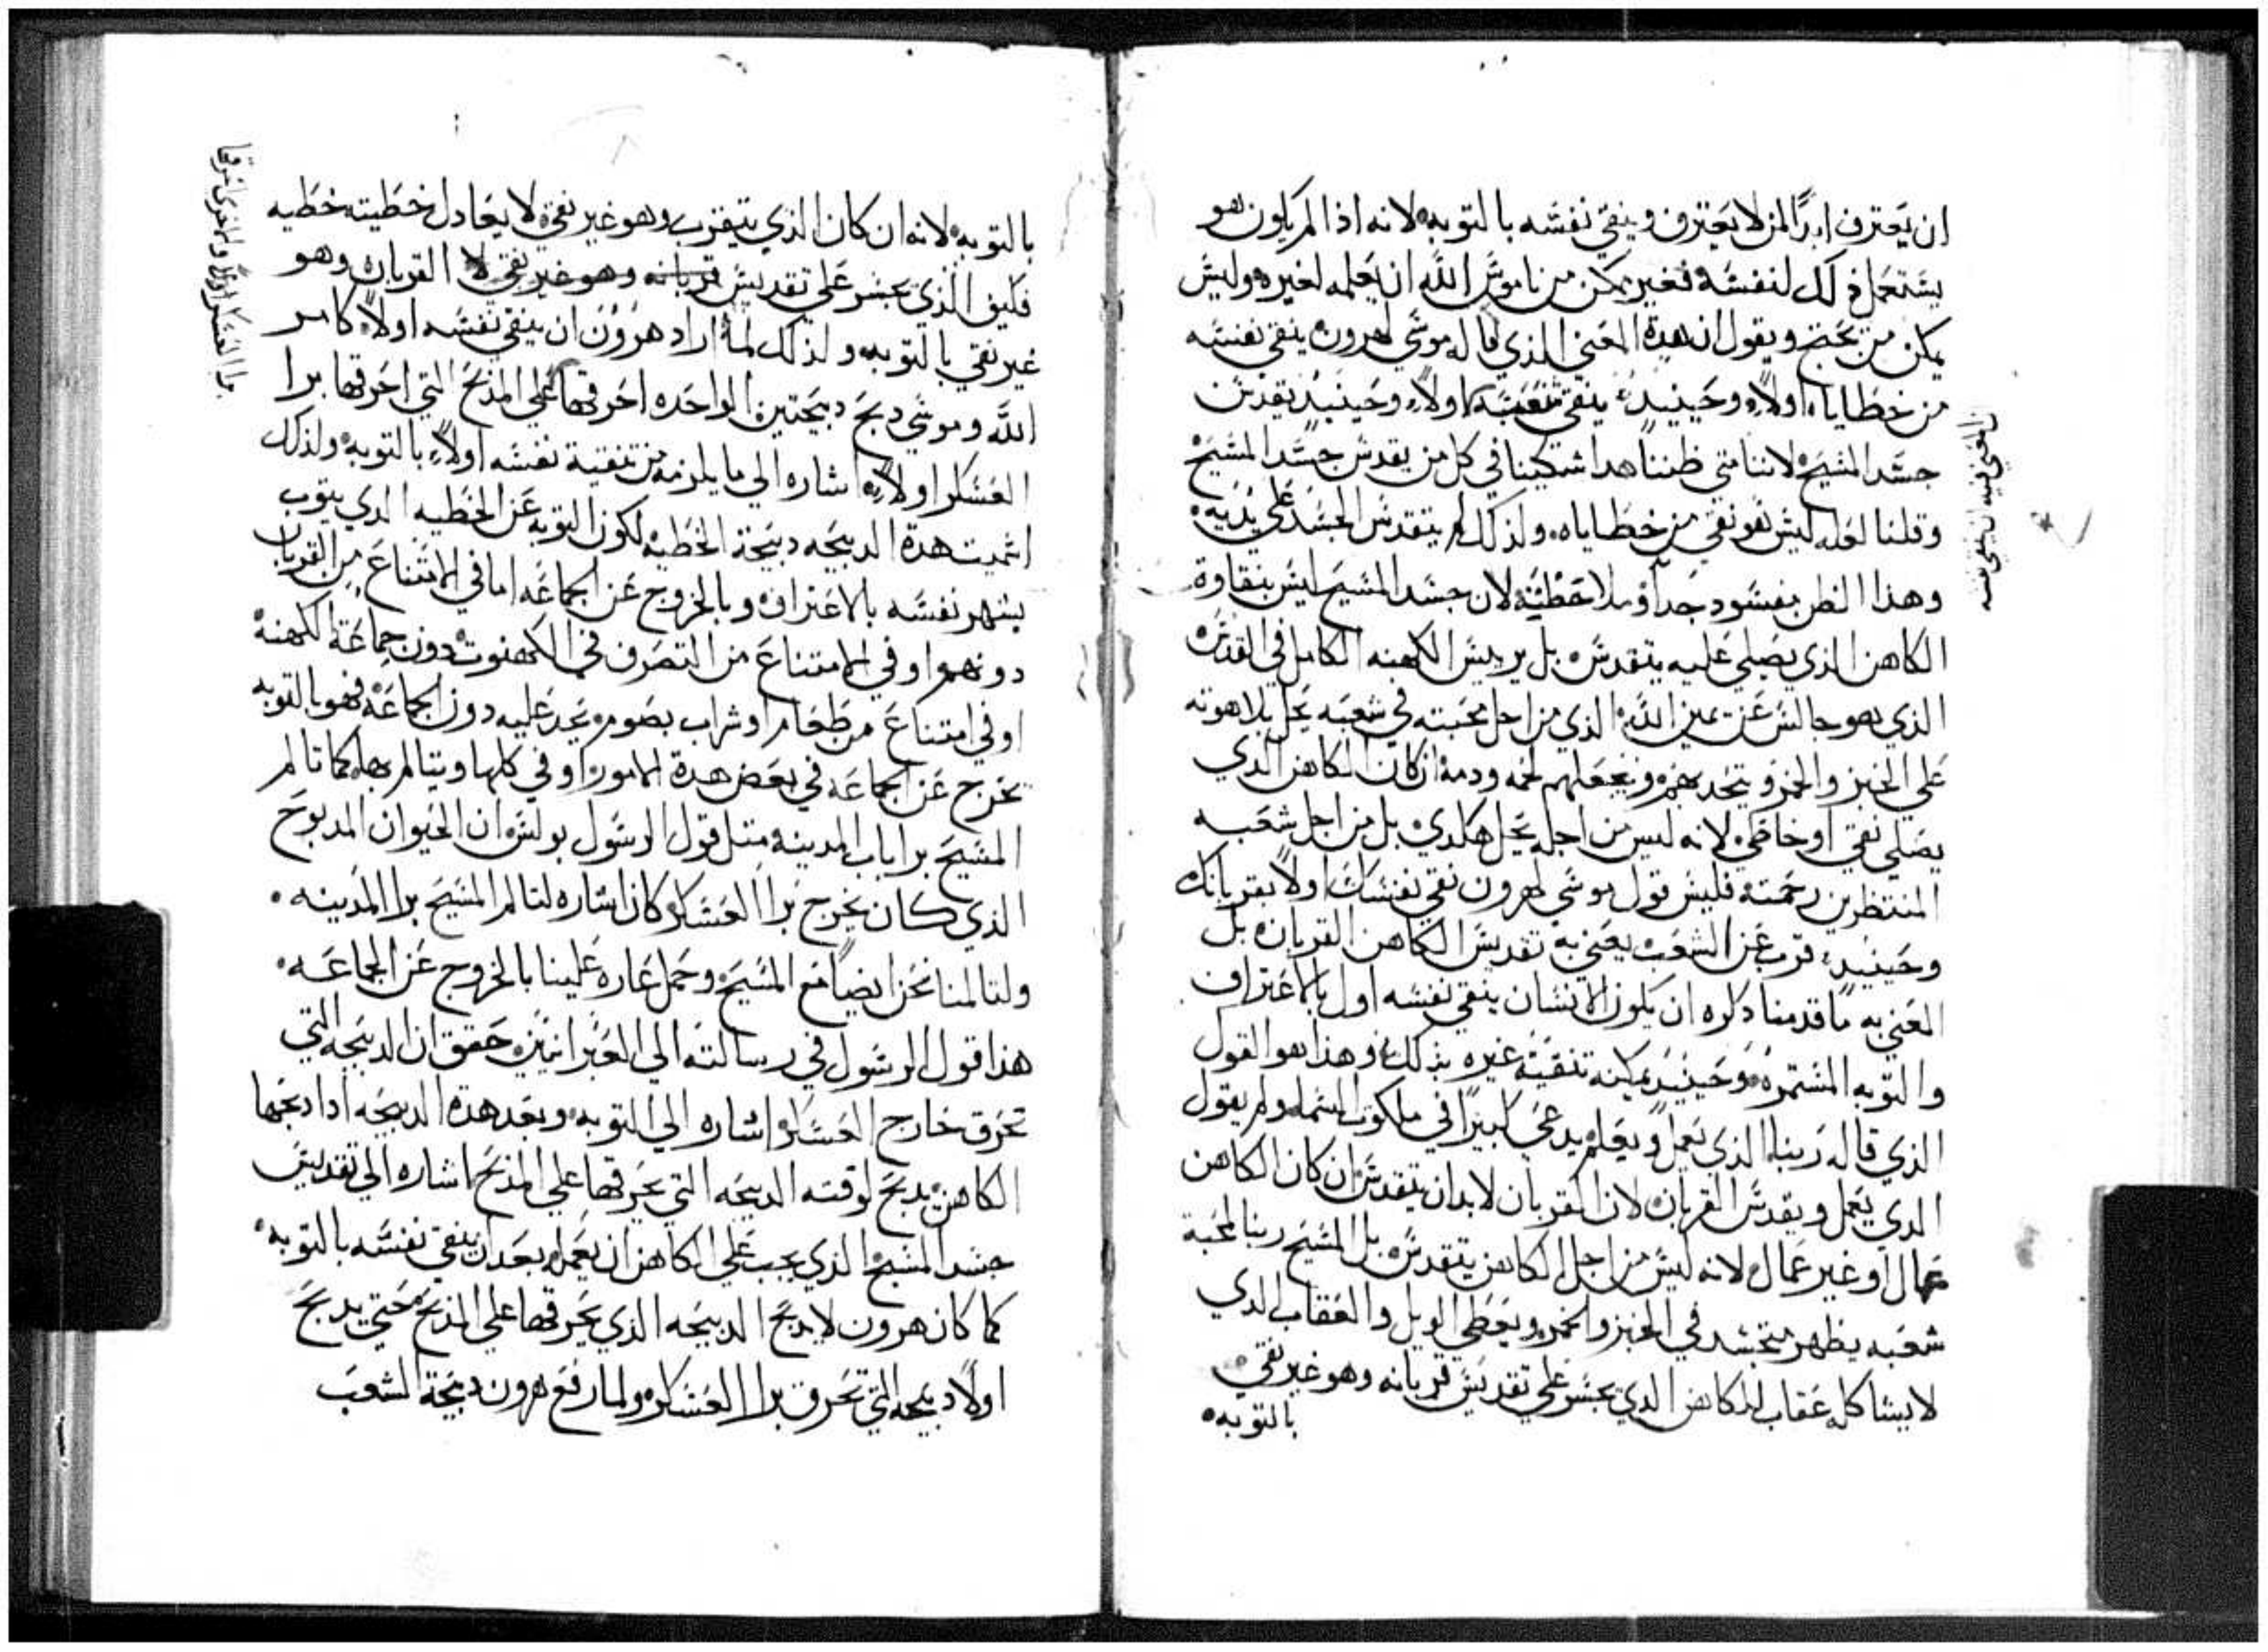 ان يعترف ابدًا لمن لا يعترف وينقي نفسه بالتوبه لانه اذا لم يكون هو
يستعمل ذلك لنفسه فغير يمكن من ناموس الله ان يعلمه لغيره وليس
يمكن من يحتج ويقول ان هدة المعني الذي قاله موسي لهرون ينقي نفسه
من خطاياه اولاً وحينيد ينقي شعبه اولاً وحينيد يقدس
جسد المسيح لاننا متي ظننا هدا اشتكينا في كل من يقدس جسد المسيح
وقلنا لعله ليس هو نقي من خطاياه ولذلك لم يتقدس الجسد علي يديه
وهذا الظن بفسود جداً وملا خطيه لان جسد المسيح ليس بنقاوة
الكاهن الذي يصلي عليه يتقدس بل بربيس الكهنه الكامل في القدس
الذي هو جالس عن يمين الله الذي من اجل محبته في شعبه يحل بلاهوته
علي الخبز والخمر ويتحد بهم ويجعلهم لحمه ودمه ان كان الكاهن الدي
يصلي نقي او خاطي لانه ليس من اجله يحل هكدي بل من اجل شعبه
المنتظرين رحمته فليس قول موسي لهرون نقي نفسك اولاً بقربانك
وحينيد قرب عن الشعب يعني به تقديس الكاهن القربان بل
المعني به ما قدمنا دكره ان يكون الانسان ينقي نفسه اول بالاعتراف
والتوبه المستمره وحينيد يمكنه تنقية غيره بذلك وهذا هو القول
الذي قاله ربنا الذي يعمل ويعلم يدعي كبيرًا في ملكوت السما ولم يقول
الدي يعمل ويقدس القربان لان القربان لا بد ان يتقدس ان كان الكاهن
عمال او غير عمال لانه ليس من اجل الكاهن يتقدس بل المسيح ربنا لمحبة
شعبه يظهر متجسد في الخبز والخمر ويعطي الويل والعقاب الدي
لا يشاكله عقاب للكاهن الدي يجسر علي تقديس قربانه وهو غير نقي
بالتوبه
المعني فيه ان ينقي نفسه
بالتوبه لانه ان كان الذي يتقرب وهو غير نقي لا يعادل خطيته خطيه
فكيف الذي يجسر علي تقديس قربانه وهو غير نقي لا القربان وهو
غير نقي بالتوبه ولذلك لما اراد هرون ان ينقي نفسه اولاً كامر
الله وموسي دبح دبيحتين الواحده احرقها علي المذبح التي احرقها برا
العسكر اولاً اشاره الي ما يلزمه من تنقية نفسه اولاً بالتوبه ولذلك
اسميت هدة الدبيحه دبيحة الخطيه لكون التوبه عن الخطيه الدي يتوب
يشهر نفسه بالاعتراف وبالخروج عن الجماعه اما في الامتناع من القربان
دونهم او في الامتناع من التصرف في الكهنوت دون جماعة الكهنه
او في امتناع من طعام او شراب بصوم يحد عليه دون الجماعه فهو بالتوبه
يخرج عن الجماعه في بعض هدة الامور او في كلها ويتالم بها كما تالم
المسيح برا باب المدينه متل قول الرسول بولس ان الحيوان المدبوح
الذي كان يخرج برا العسكر كان اشاره لتالم المسيح برا المدينه
ولتالمنا نحن ايضاً مع المسيح وحمل عاره علينا بالخروج عن الجماعه
هذا قول الرسول في رسالته الي العبرانيين حقق ان الدبيحه التي
تحرق خارج العسكر اشاره الي التوبه وبعد هدة الدبيحه ادا دبحها
الكاهن يدبح لوقته الدبيحه التي يحرقها علي المذبح اشاره الي تقديس
جسد المسيح الذي يجب علي الكاهن ان يعمله بعد ان ينقي نفسه بالتوبه
كما كان هرون لا يدبح الدبيحه الذي يحرقها علي المذبح حتي يدبح
اولاً دبيحه التي تحرق برا العسكر ولما رفع هرون دبيحة الشعب
برا العسكر اولاً والاخري احرقها